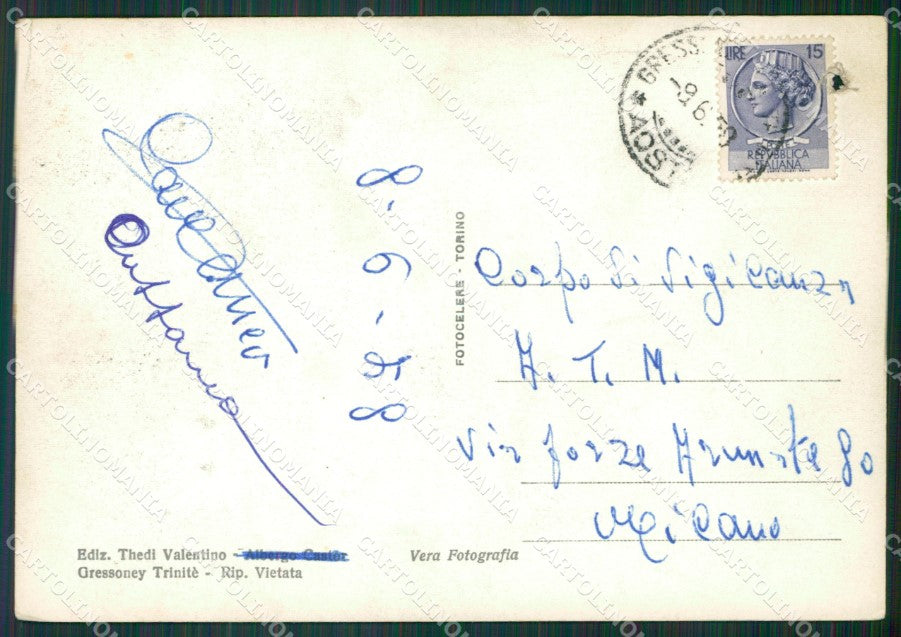 LIRE 15
REPVBBLICA
ITALIANA
GRESS
AOSTA
-9.6.
8-6-58
FOTOCELERE - TORINO
Corpo di Vigilanza
A. T. M.
Via forze Armate 80
Milano
Ediz. Thedi Valentino - Albergo Castór
Gressoney Trinitè - Rip. Vietata
Vera Fotografia
CARTOLINOMANIA